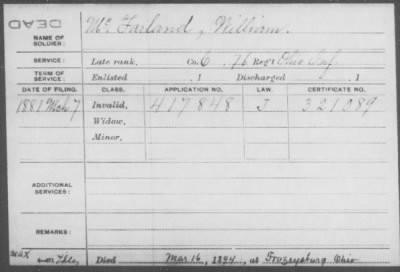 DEAD
NAME OF SOLDIER: Mc Farland, William.
SERVICE: Late rank, Co. G. 76 Reg't Ohio Inf.
TERM OF SERVICE: Enlisted , 1 Discharged , 1
DATE OF FILING. CLASS. APPLICATION NO. LAW. CERTIFICATE NO.
1881 Mch 7 Invalid, 417848 J 321089
Widow,
Minor,
ADDITIONAL SERVICES:
REMARKS:
Died Mar 16, 1894, at Frazeysburg Ohio